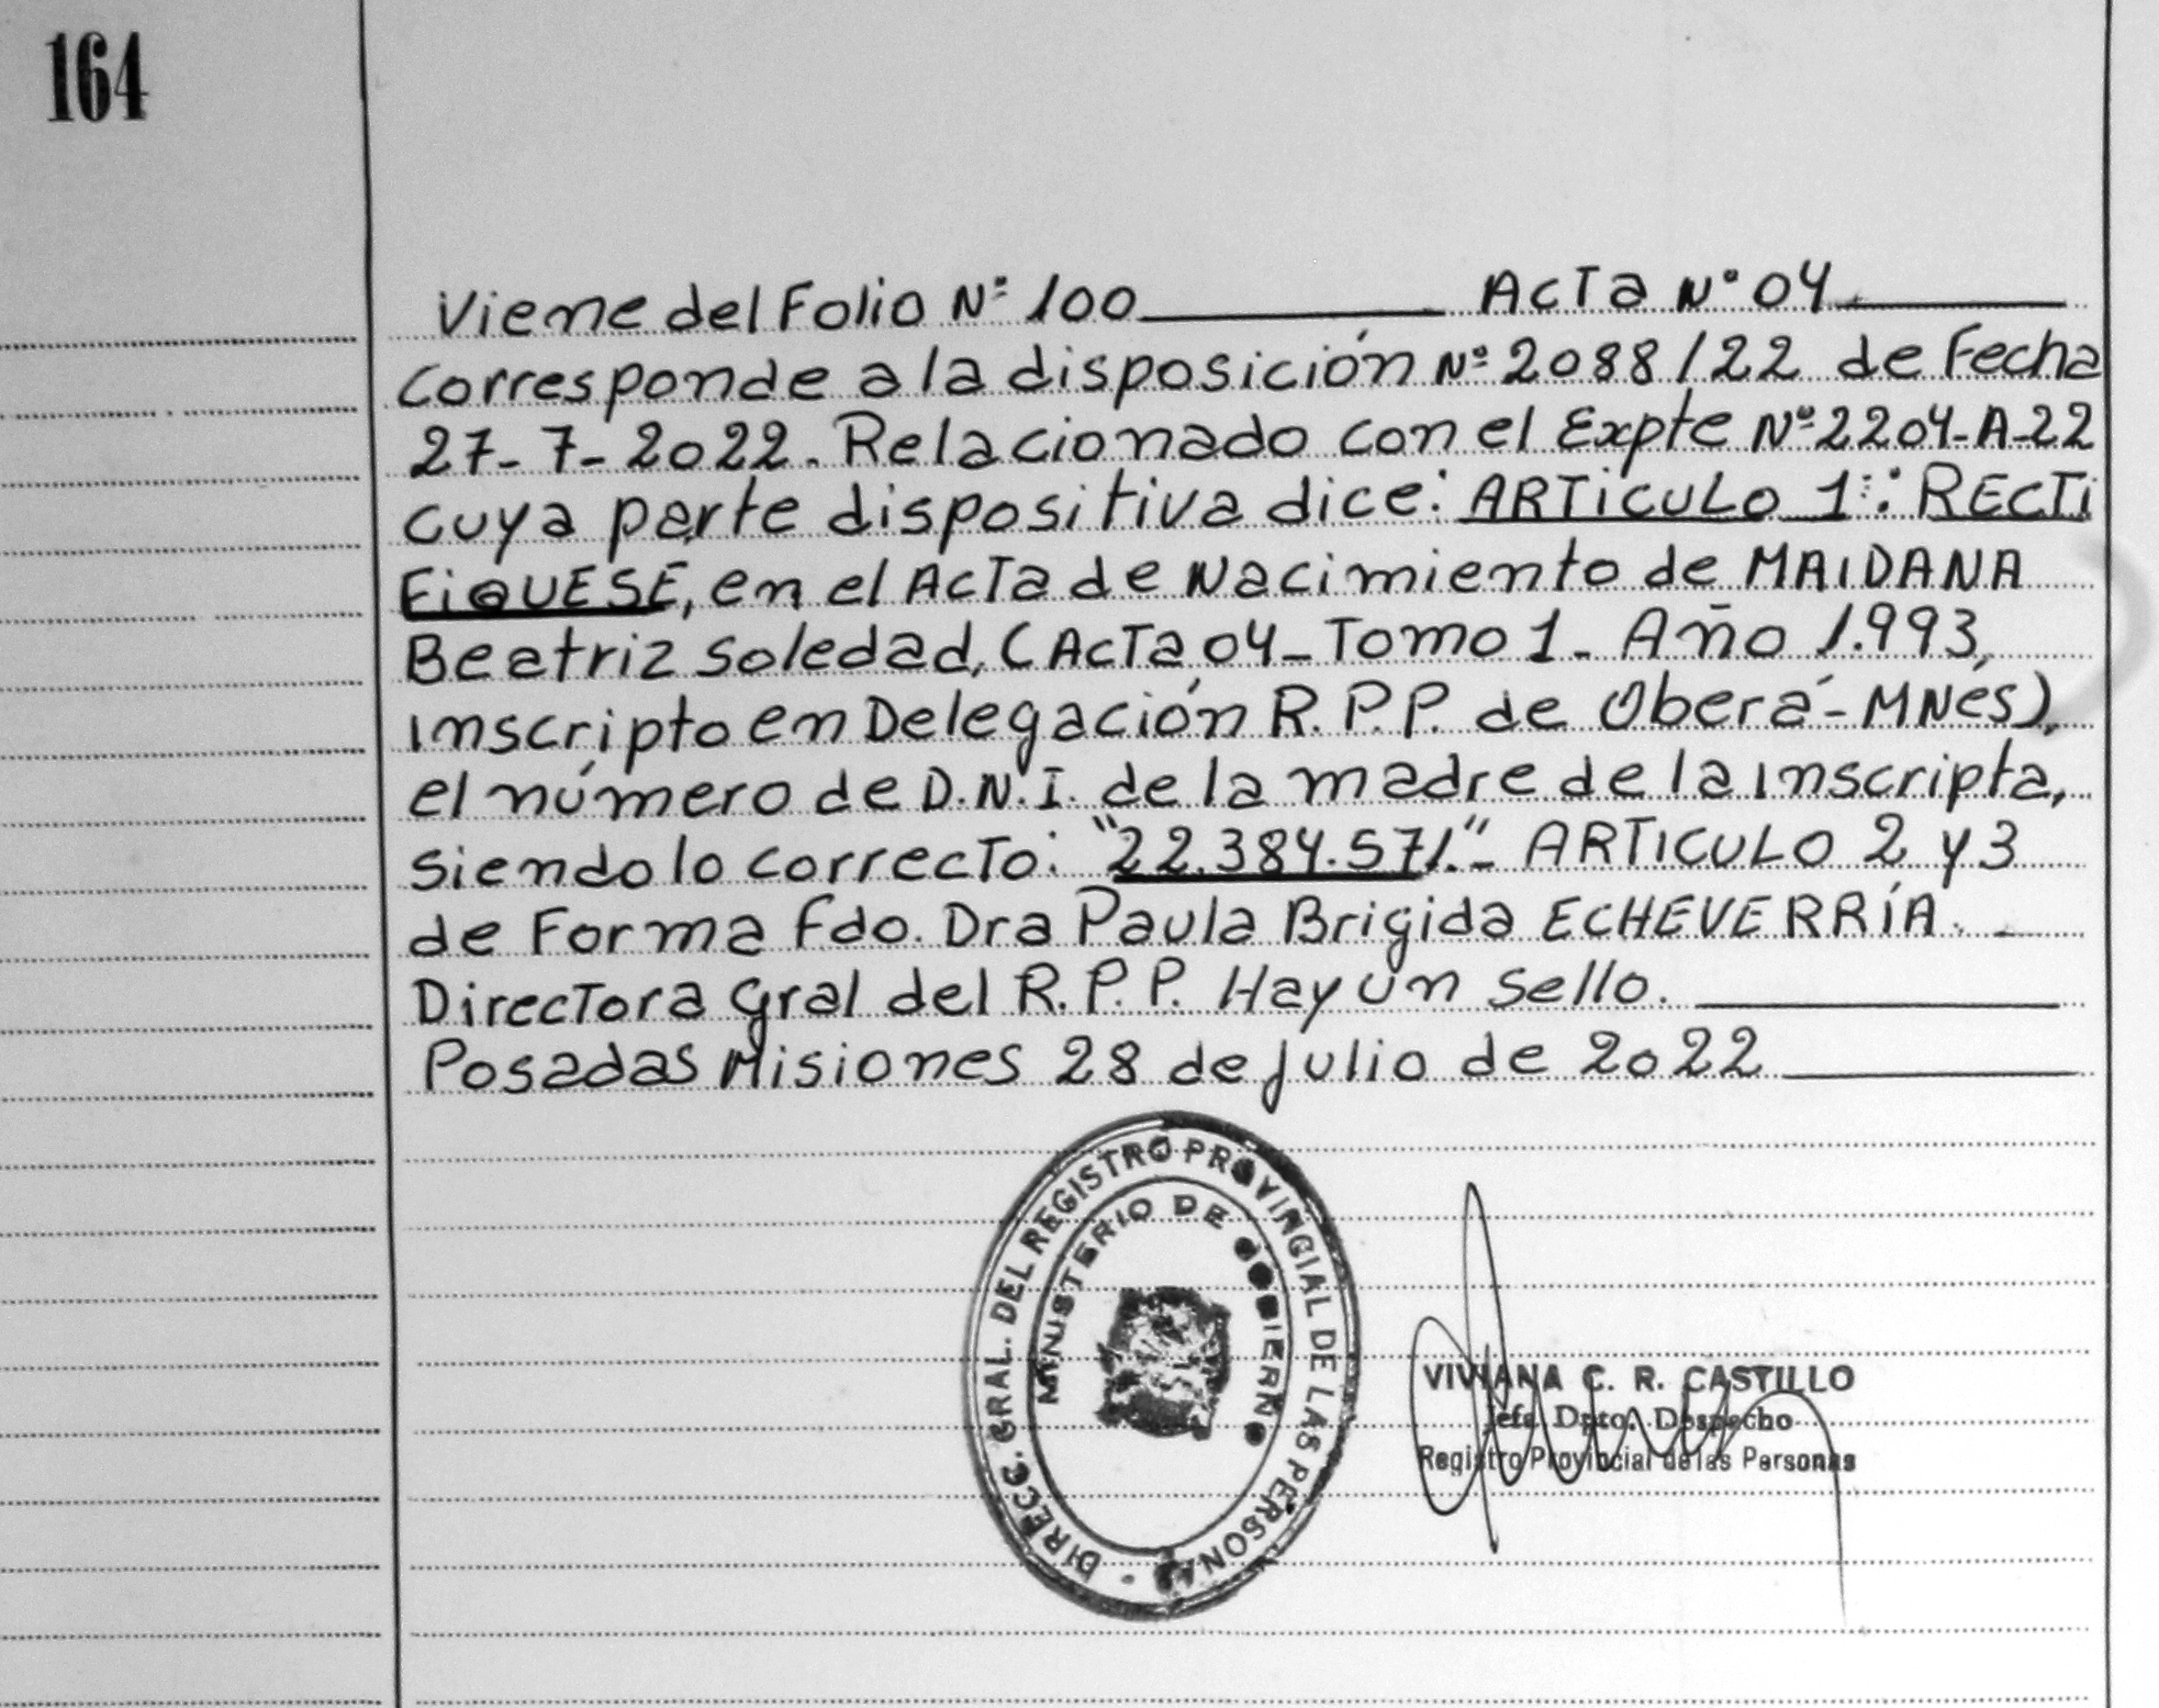 164
Viene del Folio Nº 100 ActA Nº 04
Corresponde a la disposición Nº 2088/22 de Fecha
27-7-2022. Relacionado con el Expte Nº 2204-A-22
cuya parte dispositiva dice: ARTiCULO 1º: RECTi
FiQUESE, en el ActA de Nacimiento de MAIDANA
Beatriz Soledad, (ActA 04-Tomo 1- Año 1.993,
inscripto en Delegación R.P.P. de Oberá-MNes),
el número de D.N.I. de la madre de la inscripta,
siendo lo correcto: "22.384.571."- ARTICULO 2 y 3
de Forma Fdo. Dra Paula Brigida ECHEVERRÍA. -
Directora Gral del R.P.P. Hay un sello.
Posadas Misiones 28 de julio de 2022
DIRECC. GRAL. DEL REGISTRO PROVINCIAL DE LAS PERSONAS
MINISTERIO DE GOBIERNO
VIVIANA C. R. CASTILLO
Jefa Dpto. Despacho
Registro Provincial de las Personas